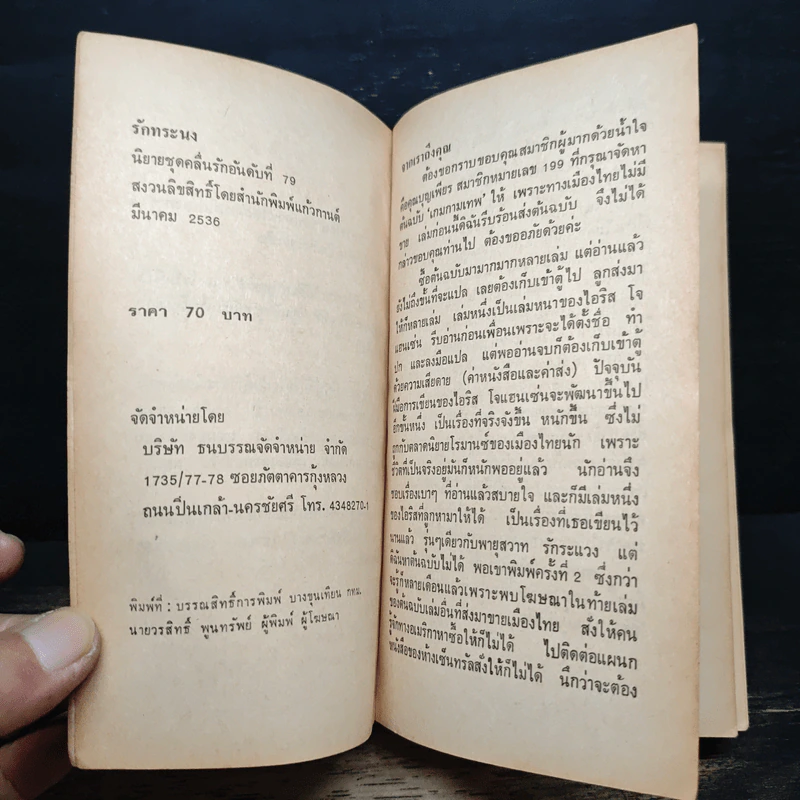 รักทระนง
นิยายชุดคลื่นรักอันดับที่ 79
สงวนลิขสิทธิ์โดยสำนักพิมพ์แก้วกานต์
มีนาคม 2536
ราคา 70 บาท
จัดจำหน่ายโดย
บริษัท ธนบรรณจัดจำหน่าย จำกัด
1735/77-78 ซอยภัตตาคารกุ้งหลวง
ถนนปิ่นเกล้า-นครชัยศรี โทร. 4348270-1
พิมพ์ที่ : บรรณสิทธิ์การพิมพ์ บางขุนเทียน กทม.
นายวรสิทธิ์ พูนทรัพย์ ผู้พิมพ์ ผู้โฆษณา
จากเราถึงคุณ
ต้องขอกราบขอบคุณสมาชิกผู้มากด้วยน้ำใจ
คือคุณบุญเพียร สมาชิกหมายเลข 199 ที่กรุณาจัดหา
ต้นฉบับ 'เกมกามเทพ' ให้ เพราะทางเมืองไทยไม่มี
ขาย เล่มก่อนนี้ดิฉันรีบร้อนส่งต้นฉบับ จึงไม่ได้
กล่าวขอบคุณท่านไป ต้องขออภัยด้วยค่ะ
ซื้อต้นฉบับมามากมากหลายเล่ม แต่อ่านแล้ว
ยังไม่ถึงขั้นที่จะแปล เลยต้องเก็บเข้าตู้ไป ลูกส่งมา
ให้ก็หลายเล่ม เล่มหนึ่งเป็นเล่มหนาของไอริส โจ
แฮนเซ่น รีบอ่านก่อนเพื่อนเพราะจะได้ตั้งชื่อ ทำ
ปก และลงมือแปล แต่พออ่านจบก็ต้องเก็บเข้าตู้
ด้วยความเสียดาย (ค่าหนังสือและค่าส่ง) ปัจจุบัน
ฝีมือการเขียนของไอริส โจแฮนเซ่นจะพัฒนาขึ้นไป
อีกขั้นหนึ่ง เป็นเรื่องที่จริงจังขึ้น หนักขึ้น ซึ่งไม่
ถูกกับตลาดนิยายโรมานซ์ของเมืองไทยนัก เพราะ
ชีวิตที่เป็นจริงอยู่มันก็หนักพออยู่แล้ว นักอ่านจึง
ชอบเรื่องเบาๆ ที่อ่านแล้วสบายใจ และก็มีเล่มหนึ่ง
ของไอริสที่ลูกหามาให้ได้ เป็นเรื่องที่เธอเขียนไว้
นานแล้ว รุ่นๆเดียวกับพายุสวาท รักระแวง แต่
ดิฉันหาต้นฉบับไม่ได้ พอเขาพิมพ์ครั้งที่ 2 ซึ่งกว่า
จะรู้ก็หลายเดือนแล้วเพราะพบโฆษณาในท้ายเล่ม
ของต้นฉบับเล่มอื่นที่ส่งมาขายเมืองไทย สั่งให้คน
รู้จักทางอเมริกาหาซื้อให้ก็ไม่ได้ ไปติดต่อแผนก
หนังสือของห้างเซ็นทรัลสั่งให้ก็ไม่ได้ นึกว่าจะต้อง